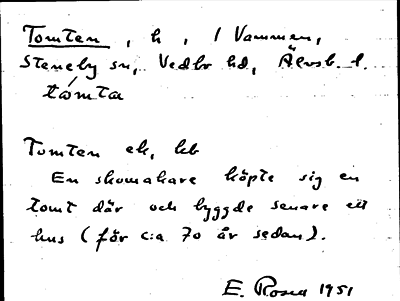 Tomten, h, i Vammen,
Steneby sn, Vedbo hd, Älvsb. l.
tómta
Tomten ek, hb
En skomakare köpte sig en
tomt där och byggde senare ett
hus (för c:a 70 år sedan).
E. Rosna 1951